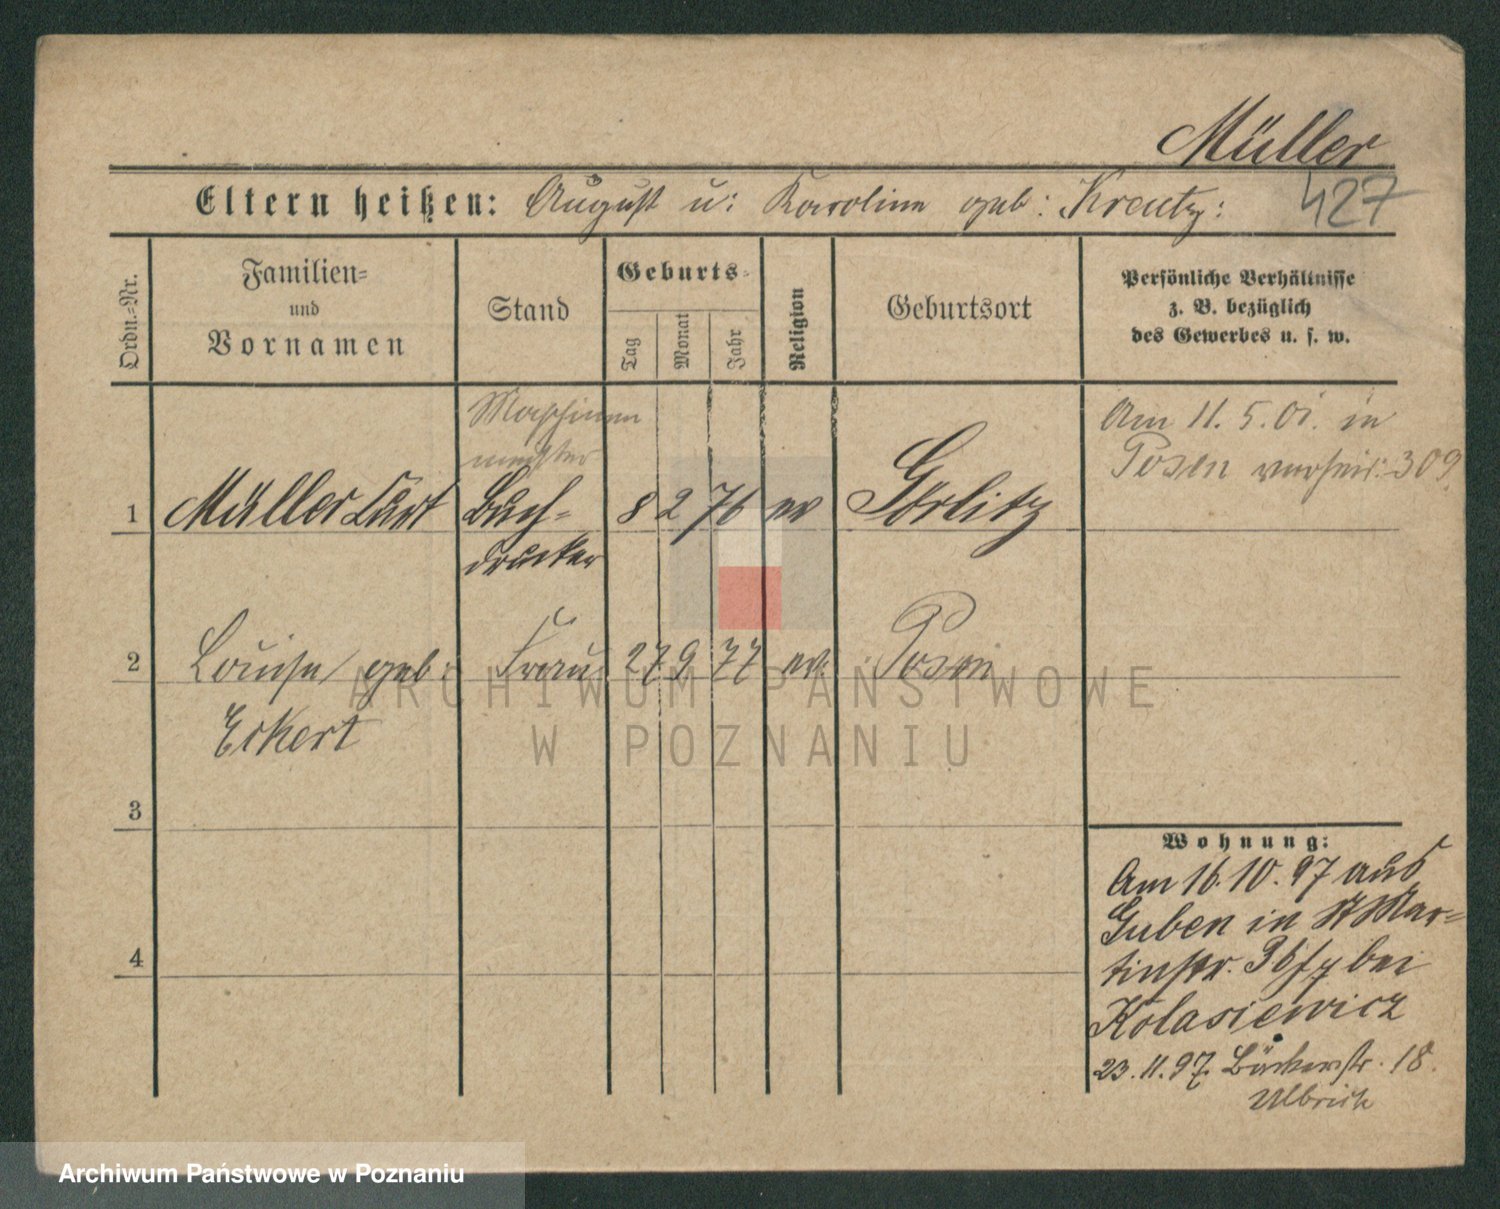 Müller
Eltern heißen: August u: Karoline geb: Kreutz:
427
Ordn.=Nr.
Familien=
und
Vornamen
Stand
Geburts=
Tag
Monat
Jahr
Religion
Geburtsort
Persönliche Verhältnisse
z. B. bezüglich
des Gewerbes u. s. w.
Maschinen
meister
1 Müller Curt Buch= 8 2 76 ev Görlitz
drucker
Am 11. 5. 01. in
Posen verheir: 309
2 Louise geb: Frau 27 9 77 ev. Posen
Eckert
3
4
Wohnung:
Am 16. 10. 97 aus
Guben in St Mar=
tinstr. bei
Kolasiewicz
23. 11. 97. Bäckerstr. 18.
Ulbrich
ARCHIWUM PAŃSTWOWE
W POZNANIU
Archiwum Państwowe w Poznaniu